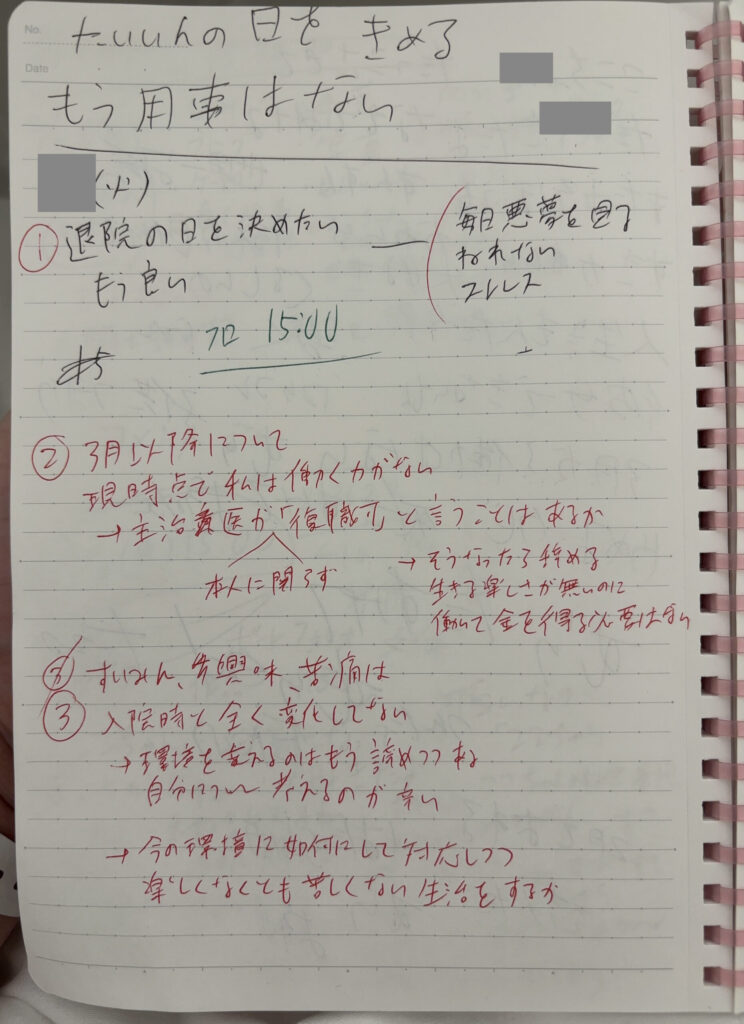 No.
Date
たいいんの日を きめる
もう用事はない
(火)
① 退院の日を決めたい
もう良い
毎日悪夢を見る
ねれない
ストレス
フロ 15:00
② 3月以降について
現時点で私は働く力がない
→主治医が「復職可」と言うことはあるか
本人に関らず
→そうなったら辞める
生きる楽しさが無いのに
働いて金を得る必要はない
すいみん、興味、苦痛は
③ 入院時と全く変化してない
→環境を変えるのはもう諦めつつね
自分について考えるのが辛い
→今の環境に如何にして対応しつつ
楽しくなくとも苦しくない生活をするか